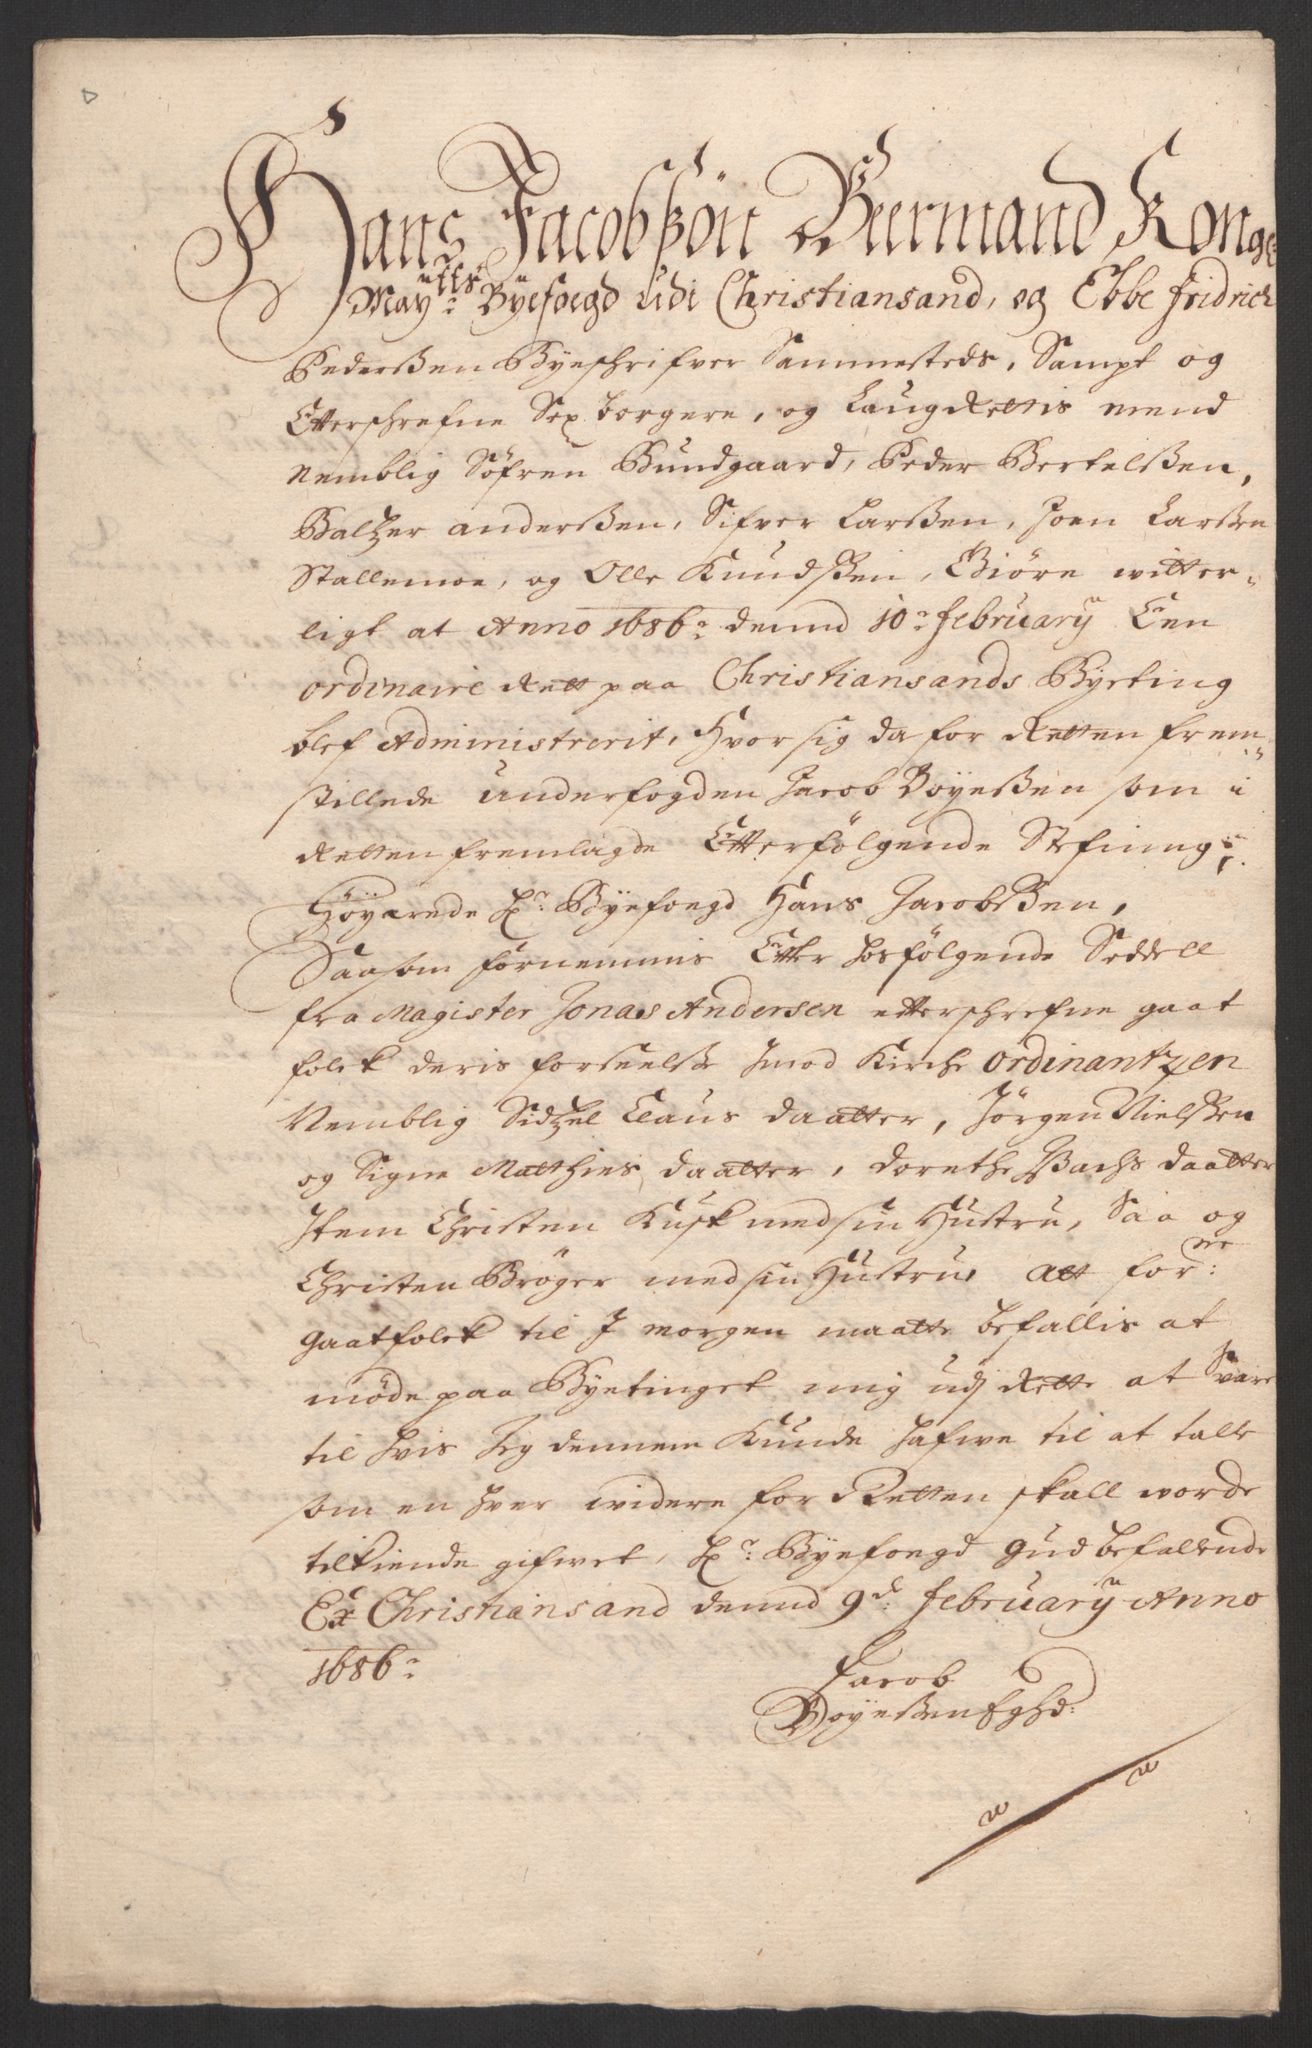 Hans Jacobßön Beermand Kong:
May:tts Byefoegd udi Christiansand, og Ebbe fridrich
Pederßen Byeschrifver Sammesteds, Sampt og
Etterschrefne Sex borgere, og LaugRettis mend
Nemblig Söfren Bundgaard, Peder Bertelßen,
Baltzer anderßen, Sifver Larßen, Joen Larßen
Stallemoe, og Olle Knudßen, Giöre witter-
ligt at Anno 1686: dennd 10: february Een
ordinaire Rett paa Christiansands Byeting
blef Administrerit, Hvor sig da for Retten frem-
stillede underfogden Jacob Boyeßen som i
Retten fremlagde Etterfölgende Stefning:
Höyacrede Hr: Byefoegd Hans Jacobßen,
Saasom förnemmis Etter hosfölgende Seddell
fra Magister Jonas Andersen etterschrefne gaat
folck deris forseelse Imod Kirche Ordinantzen
Nemblig Sidzel Claus daatter, Jörgen Nielßen
og Signe Matthies daatter, dorethe Bachs daatter
Item Christen Kusk med sin Hustru, Saa og
Christen Bröger med sin Hustrue Att for:ne
Gaatfolck til I morgen maatte befallis at
möde paa Byetinget mig udj Rette at Svare
til hvis Jeg dennem Kunde hafwe til at talle
som en hver widere for Retten skall worde
tilkiende gifwet, Hr: Byefoegd Gud befallende
Ex Christiansand dennd 9d: february Anno
1686:
Jacob
Boyeßen Eghd: